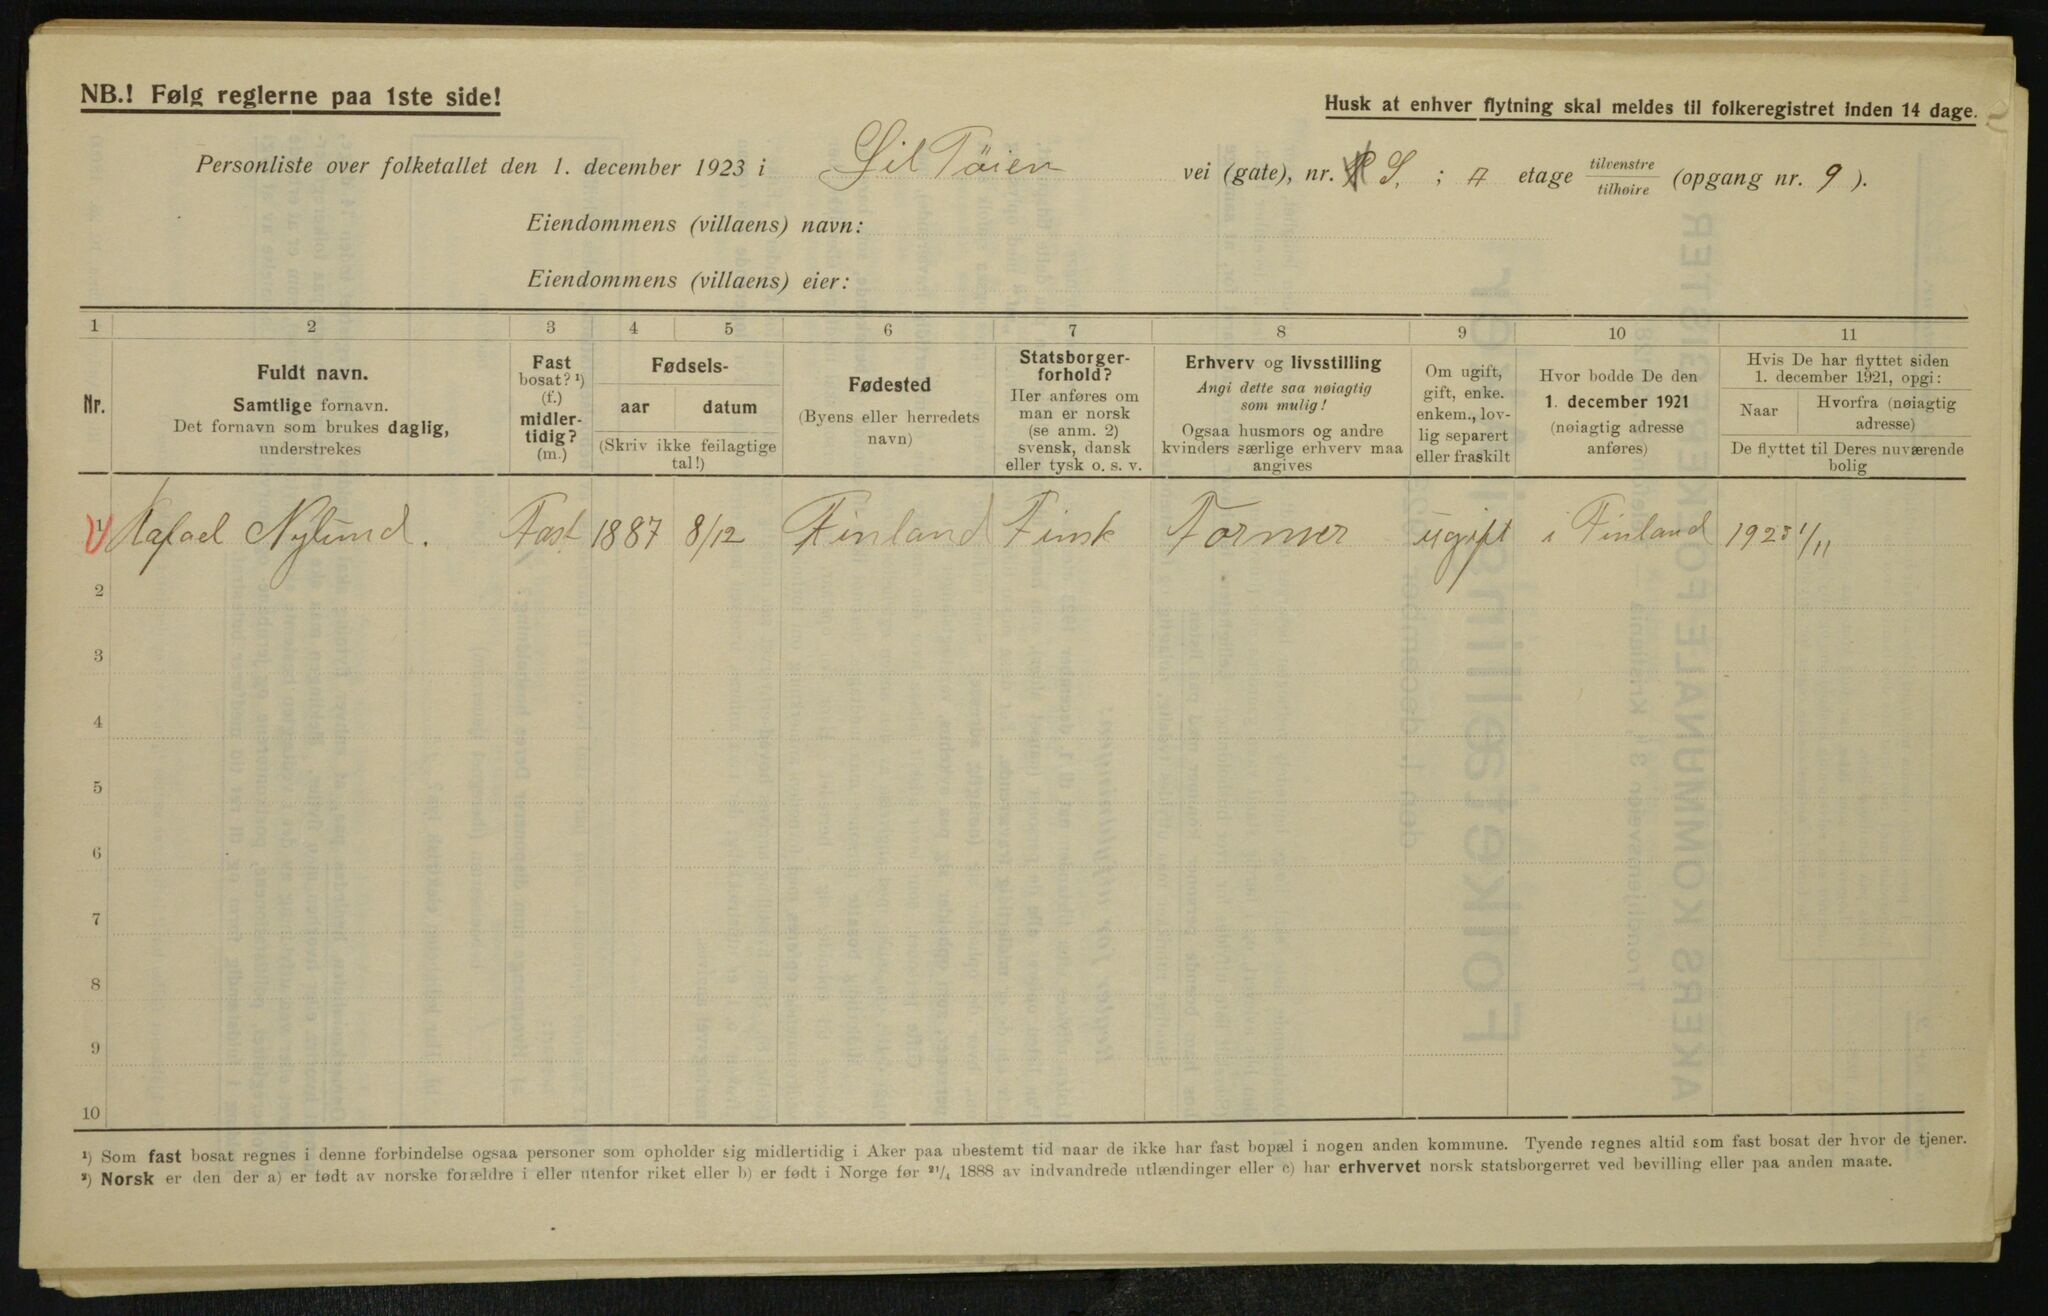 NB.! Følg reglerne paa 1ste side!
Husk at enhver flytning skal meldes til folkeregistret inden 14 dage.
Personliste over folketallet den 1. december 1923 i Lil Tøien vei (gate), nr. S. ; etage tilvenstre/tilhøire (opgang nr. 9 ).
Eiendommens (villaens) navn:
Eiendommens (villaens) eier:
1 2 3 4 5 6 7 8 9 10 11
Nr.
Fuldt navn.
Samtlige fornavn.
Det fornavn som brukes daglig,
understrekes
Fast
bosat? ¹)
(f.)
midler-
tidig?
(m.)
Fødsels-
aar datum
(Skriv ikke feilagtige
tal!)
Fødested
(Byens eller herredets
navn)
Statsborger-
forhold?
Her anføres om
man er norsk
(se anm. 2)
svensk, dansk
eller tysk o. s. v.
Erhverv og livsstilling
Angi dette saa nøiagtig
som mulig!
Ogsaa husmors og andre
kvinders særlige erhverv maa
angives
Om ugift,
gift, enke.
enkem., lov-
lig separert
eller fraskilt
Hvor bodde De den
1. december 1921
(nøiagtig adresse
anføres)
Hvis De har flyttet siden
1. december 1921, opgi:
Naar
Hvorfra (nøiagtig
adresse)
De flyttet til Deres nuværende
bolig
1 Rafael Nylund. Fast 1887 8/12 Finland Finsk Former ugift i Finland 1923 1/11
2
3
4
5
6
7
8
9
10
¹) Som fast bosat regnes i denne forbindelse ogsaa personer som opholder sig midlertidig i Aker paa ubestemt tid naar de ikke har fast bopæl i nogen anden kommune. Tyende regnes altid som fast bosat der hvor de tjener.
²) Norsk er den der a) er født av norske forældre i eller utenfor riket eller b) er født i Norge før ²¹/₄ 1888 av indvandrede utlændinger eller c) har erhvervet norsk statsborgerret ved bevilling eller paa anden maate.